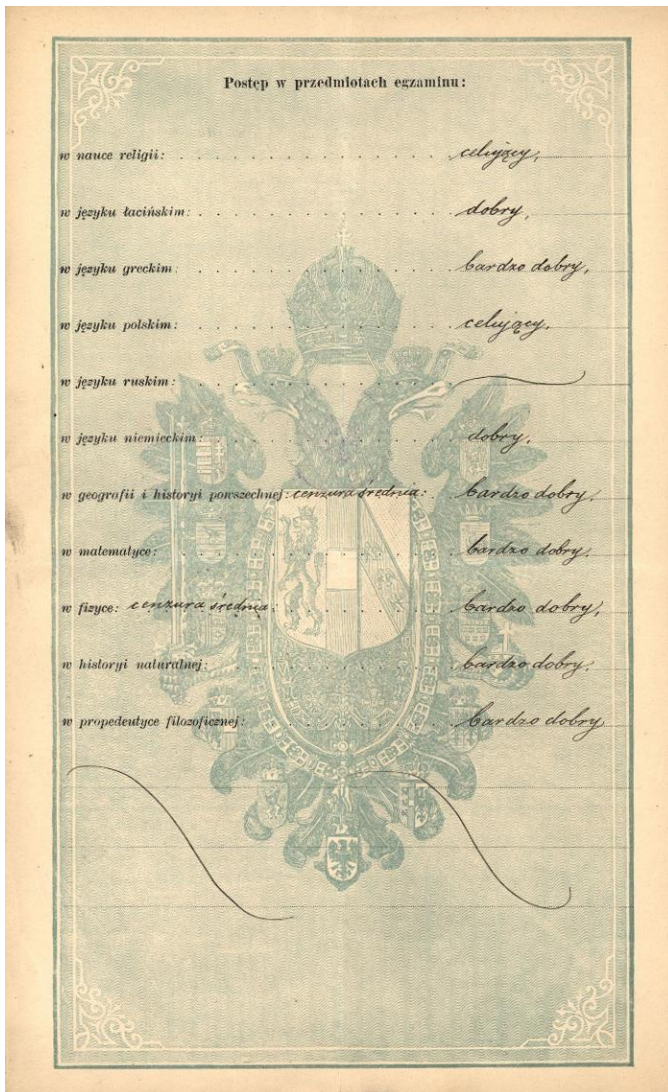 Postęp w przedmiotach egzaminu:
w nauce religii: celujący,
w języku łacińskim: dobry,
w języku greckim: bardzo dobry,
w języku polskim: celujący.
w języku ruskim:
w języku niemieckim: dobry,
w geografii i historyi powszechnej: cenzura średnia: bardzo dobry.
w matematyce: bardzo dobry.
w fizyce: cenzura średnia: bardzo dobry,
w historyi naturalnej: bardzo dobry.
w propedeutyce filozoficznej: bardzo dobry